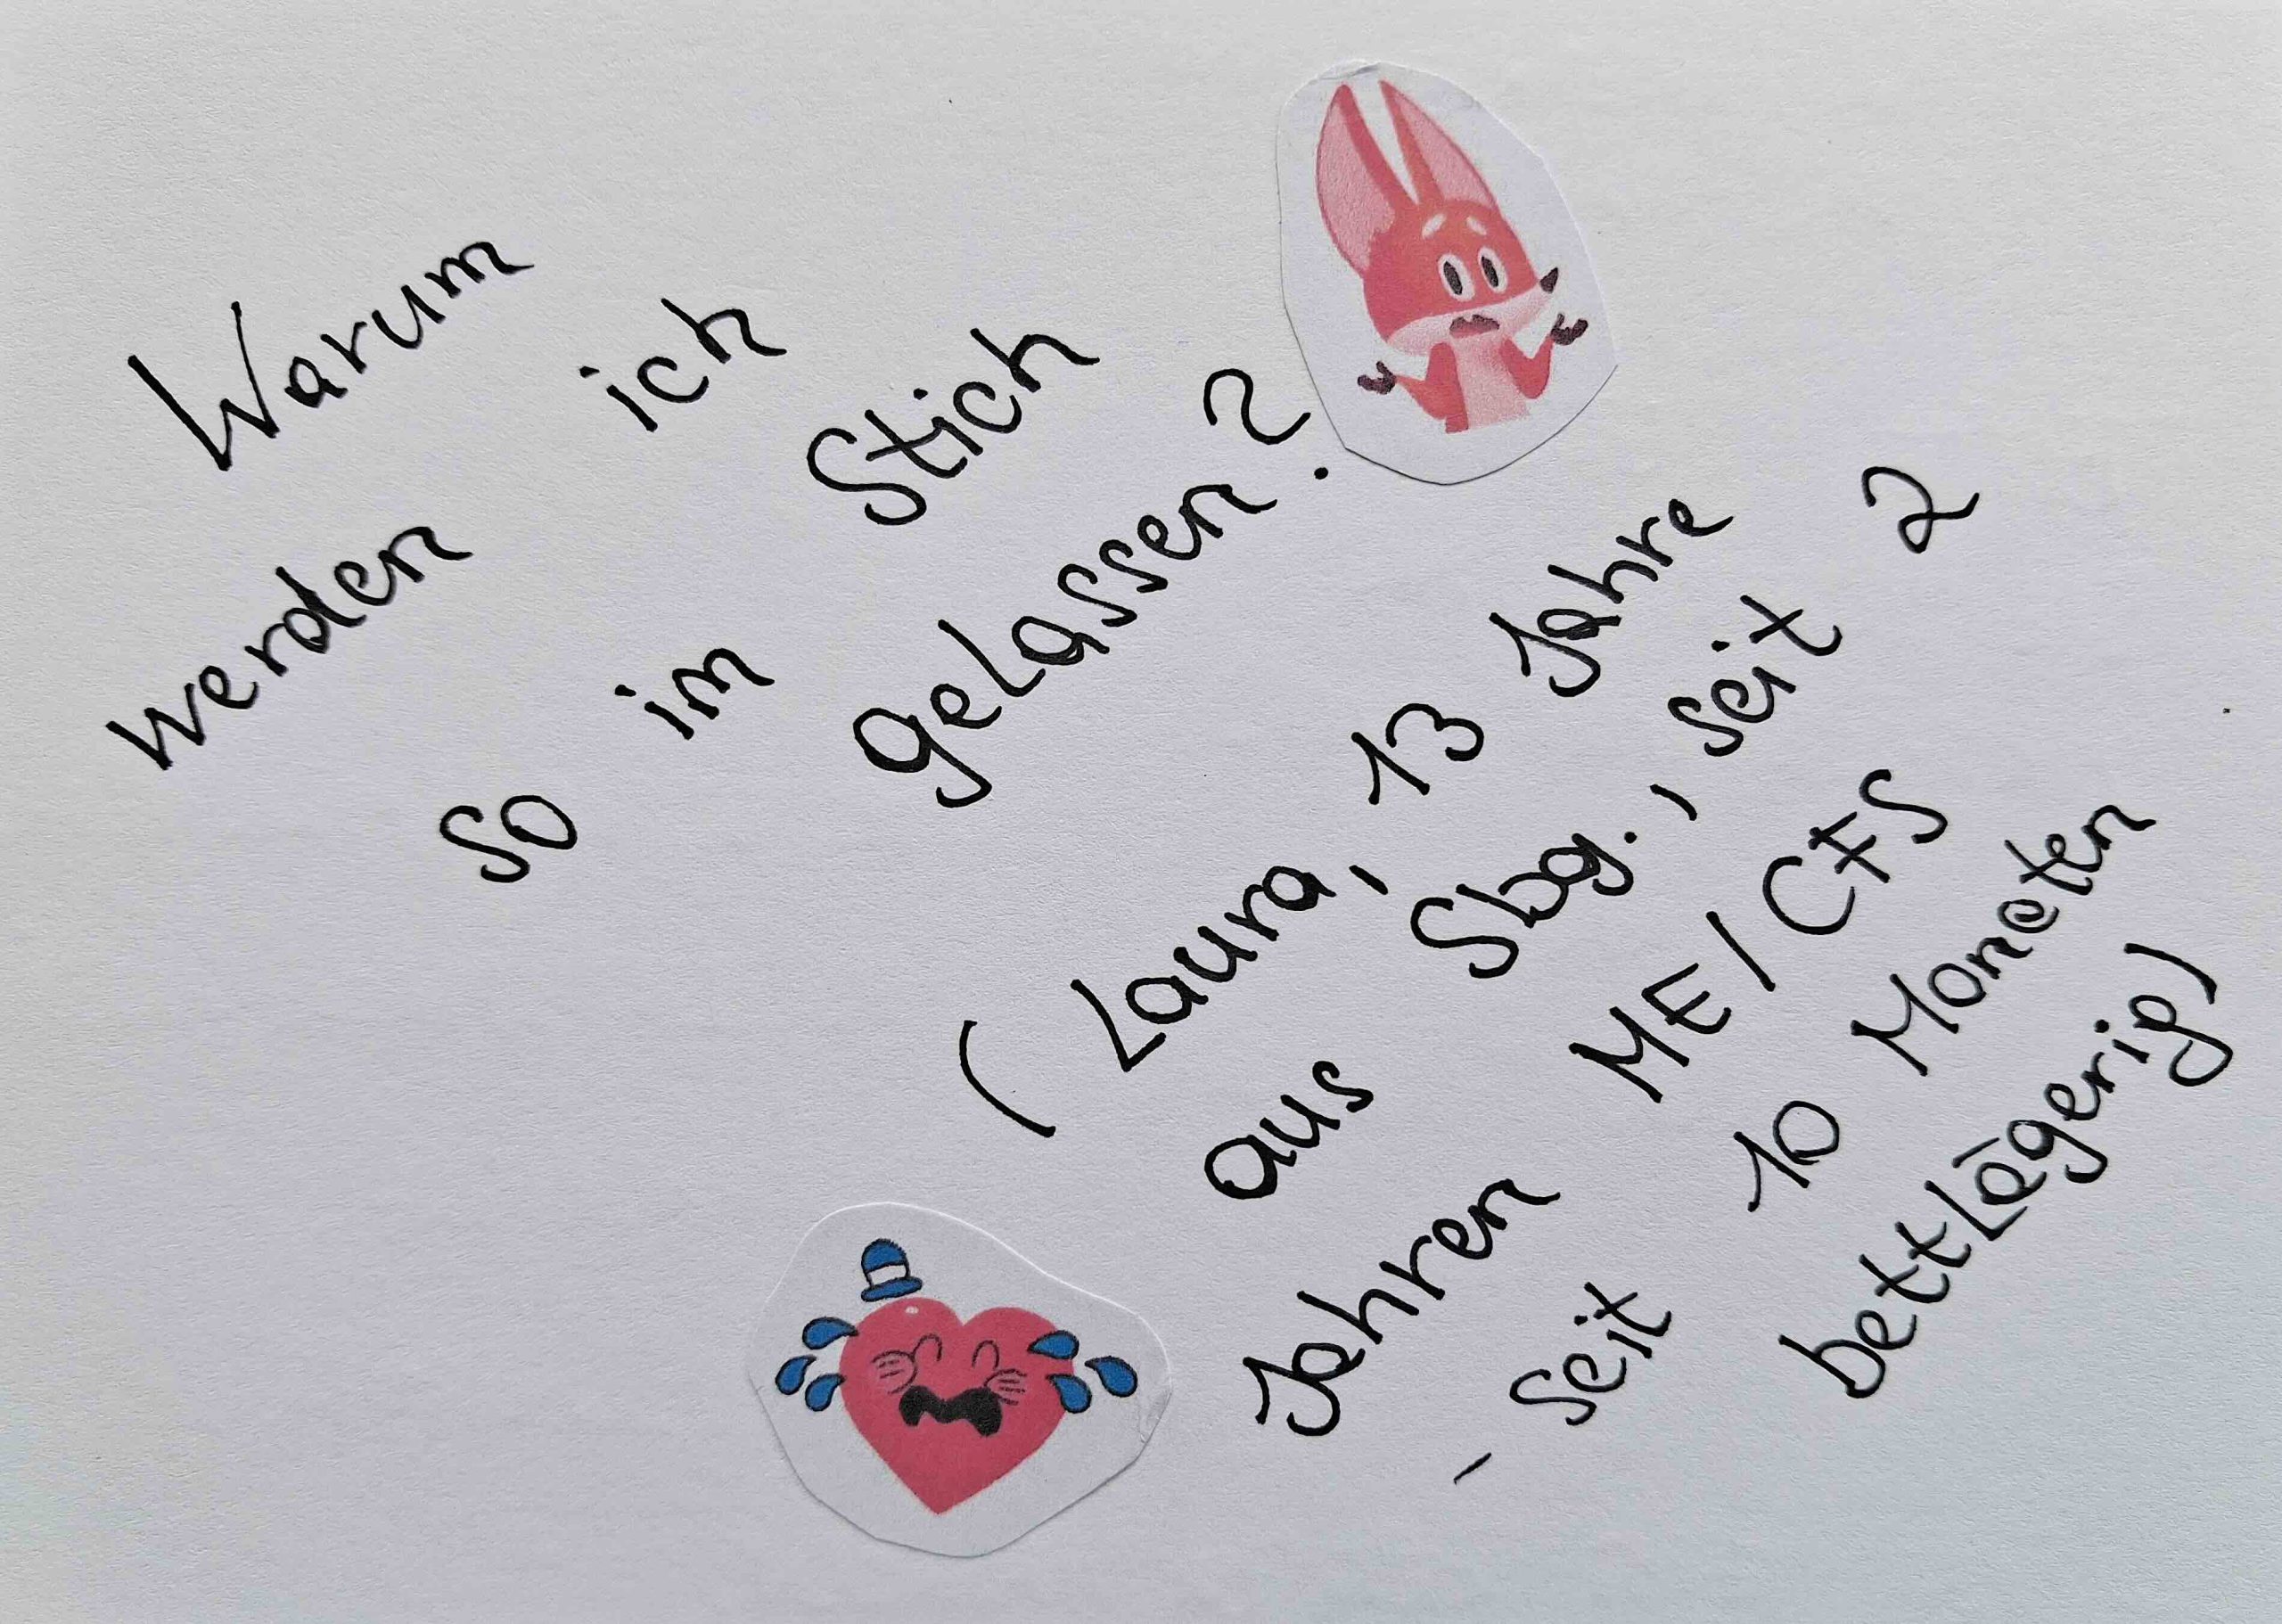 Warum
werden ich
so im Stich
gelassen?
(Laura, 13 Jahre
aus Sbg., seit 2
Jahren ME/CFS
- seit 10 Moneten
bettlägerig)